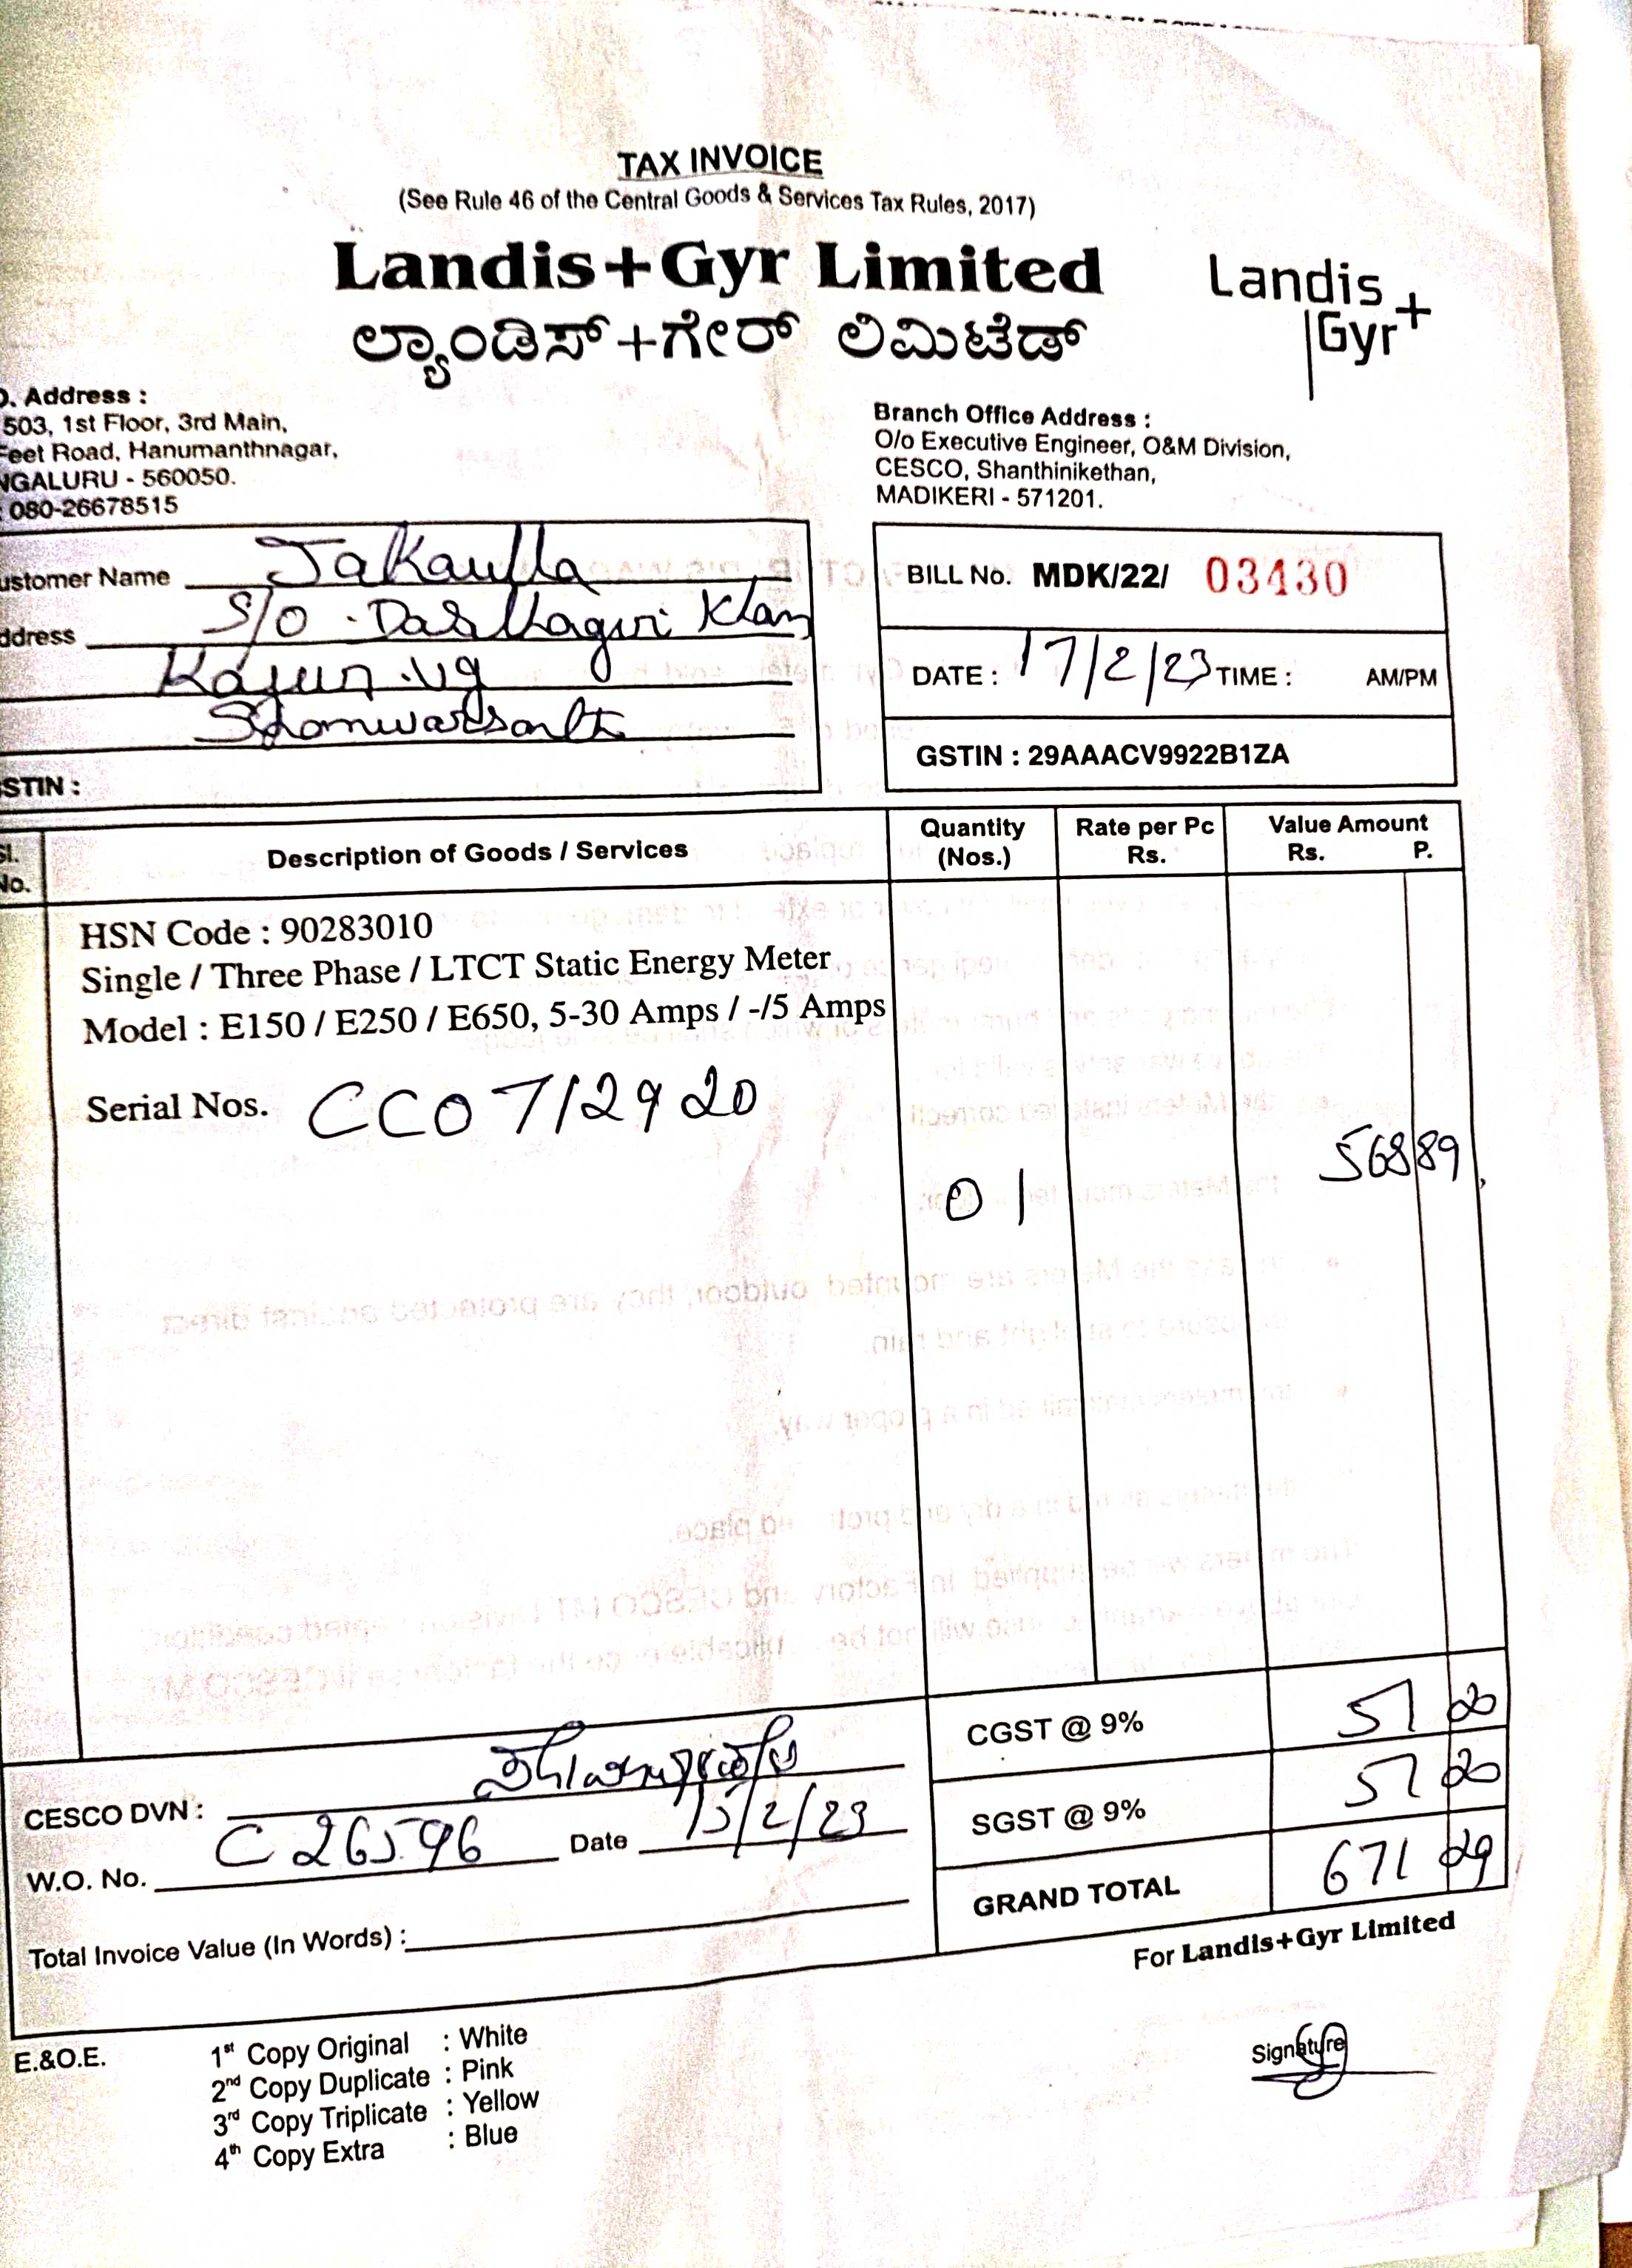 TAX INVOICE
(See Rule 46 of the Central Goods & Services Tax Rules, 2017)
Landis+Gyr Limited
ಲ್ಯಾಂಡಿಸ್+ಗೇರ್ ಲಿಮಿಟೆಡ್
Landis
Gyr+
. Address :
503, 1st Floor, 3rd Main,
Feet Road, Hanumanthnagar,
NGALURU - 560050.
080-26678515
Branch Office Address :
O/o Executive Engineer, O&M Division,
CESCO, Shanthinikethan,
MADIKERI - 571201.
ustomer Name Jakaulla
ddress S/O . Dasthagiri Khan
BILL No. MDK/22/ 03430
DATE : 17/2/23 TIME : AM/PM
GSTIN : 29AAACV9922B1ZA
STIN :
Sl. No. Description of Goods / Services Quantity (Nos.) Rate per Pc Rs. Value Amount Rs. P.
HSN Code : 90283010
Single / Three Phase / LTCT Static Energy Meter
Model : E150 / E250 / E650, 5-30 Amps / -/5 Amps
Serial Nos. CC0712920
01 568 89
CGST @ 9% 51 20
SGST @ 9% 51 20
GRAND TOTAL 671 29
CESCO DVN :
W.O. No. C 26596 Date 15/2/23
Total Invoice Value (In Words) :
For Landis+Gyr Limited
Signature
E.&O.E.
1st Copy Original : White
2nd Copy Duplicate : Pink
3rd Copy Triplicate : Yellow
4th Copy Extra : Blue